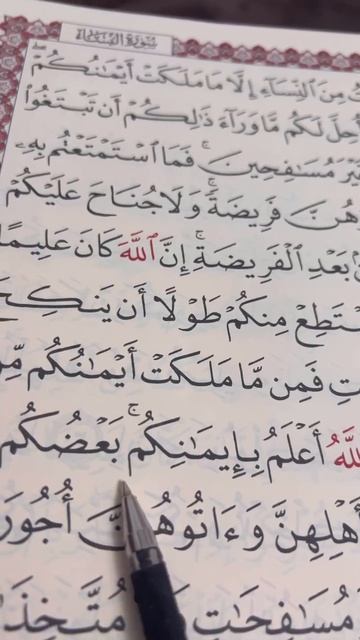 سُورَةُ النِّسَاءِ
مِنَ ٱلنِّسَآءِ إِلَّا مَا مَلَكَتْ أَيْمَٰنُكُمْ
لَكُم مَّا وَرَآءَ ذَٰلِكُمْ أَن تَبْتَغُوا۟
مُسَٰفِحِينَ ۚ فَمَا ٱسْتَمْتَعْتُم بِهِۦ
فَرِيضَةً ۚ وَلَا جُنَاحَ عَلَيْكُمْ
بَعْدِ ٱلْفَرِيضَةِ ۚ إِنَّ ٱللَّهَ كَانَ عَلِيمًا
مِنكُمْ طَوْلًا أَن
فَمِن مَّا مَلَكَتْ أَيْمَٰنُكُم
أَعْلَمُ بِإِيمَٰنِكُم ۚ بَعْضُكُم
وَءَاتُوهُنَّ
مُسَٰفِحَٰتٍ